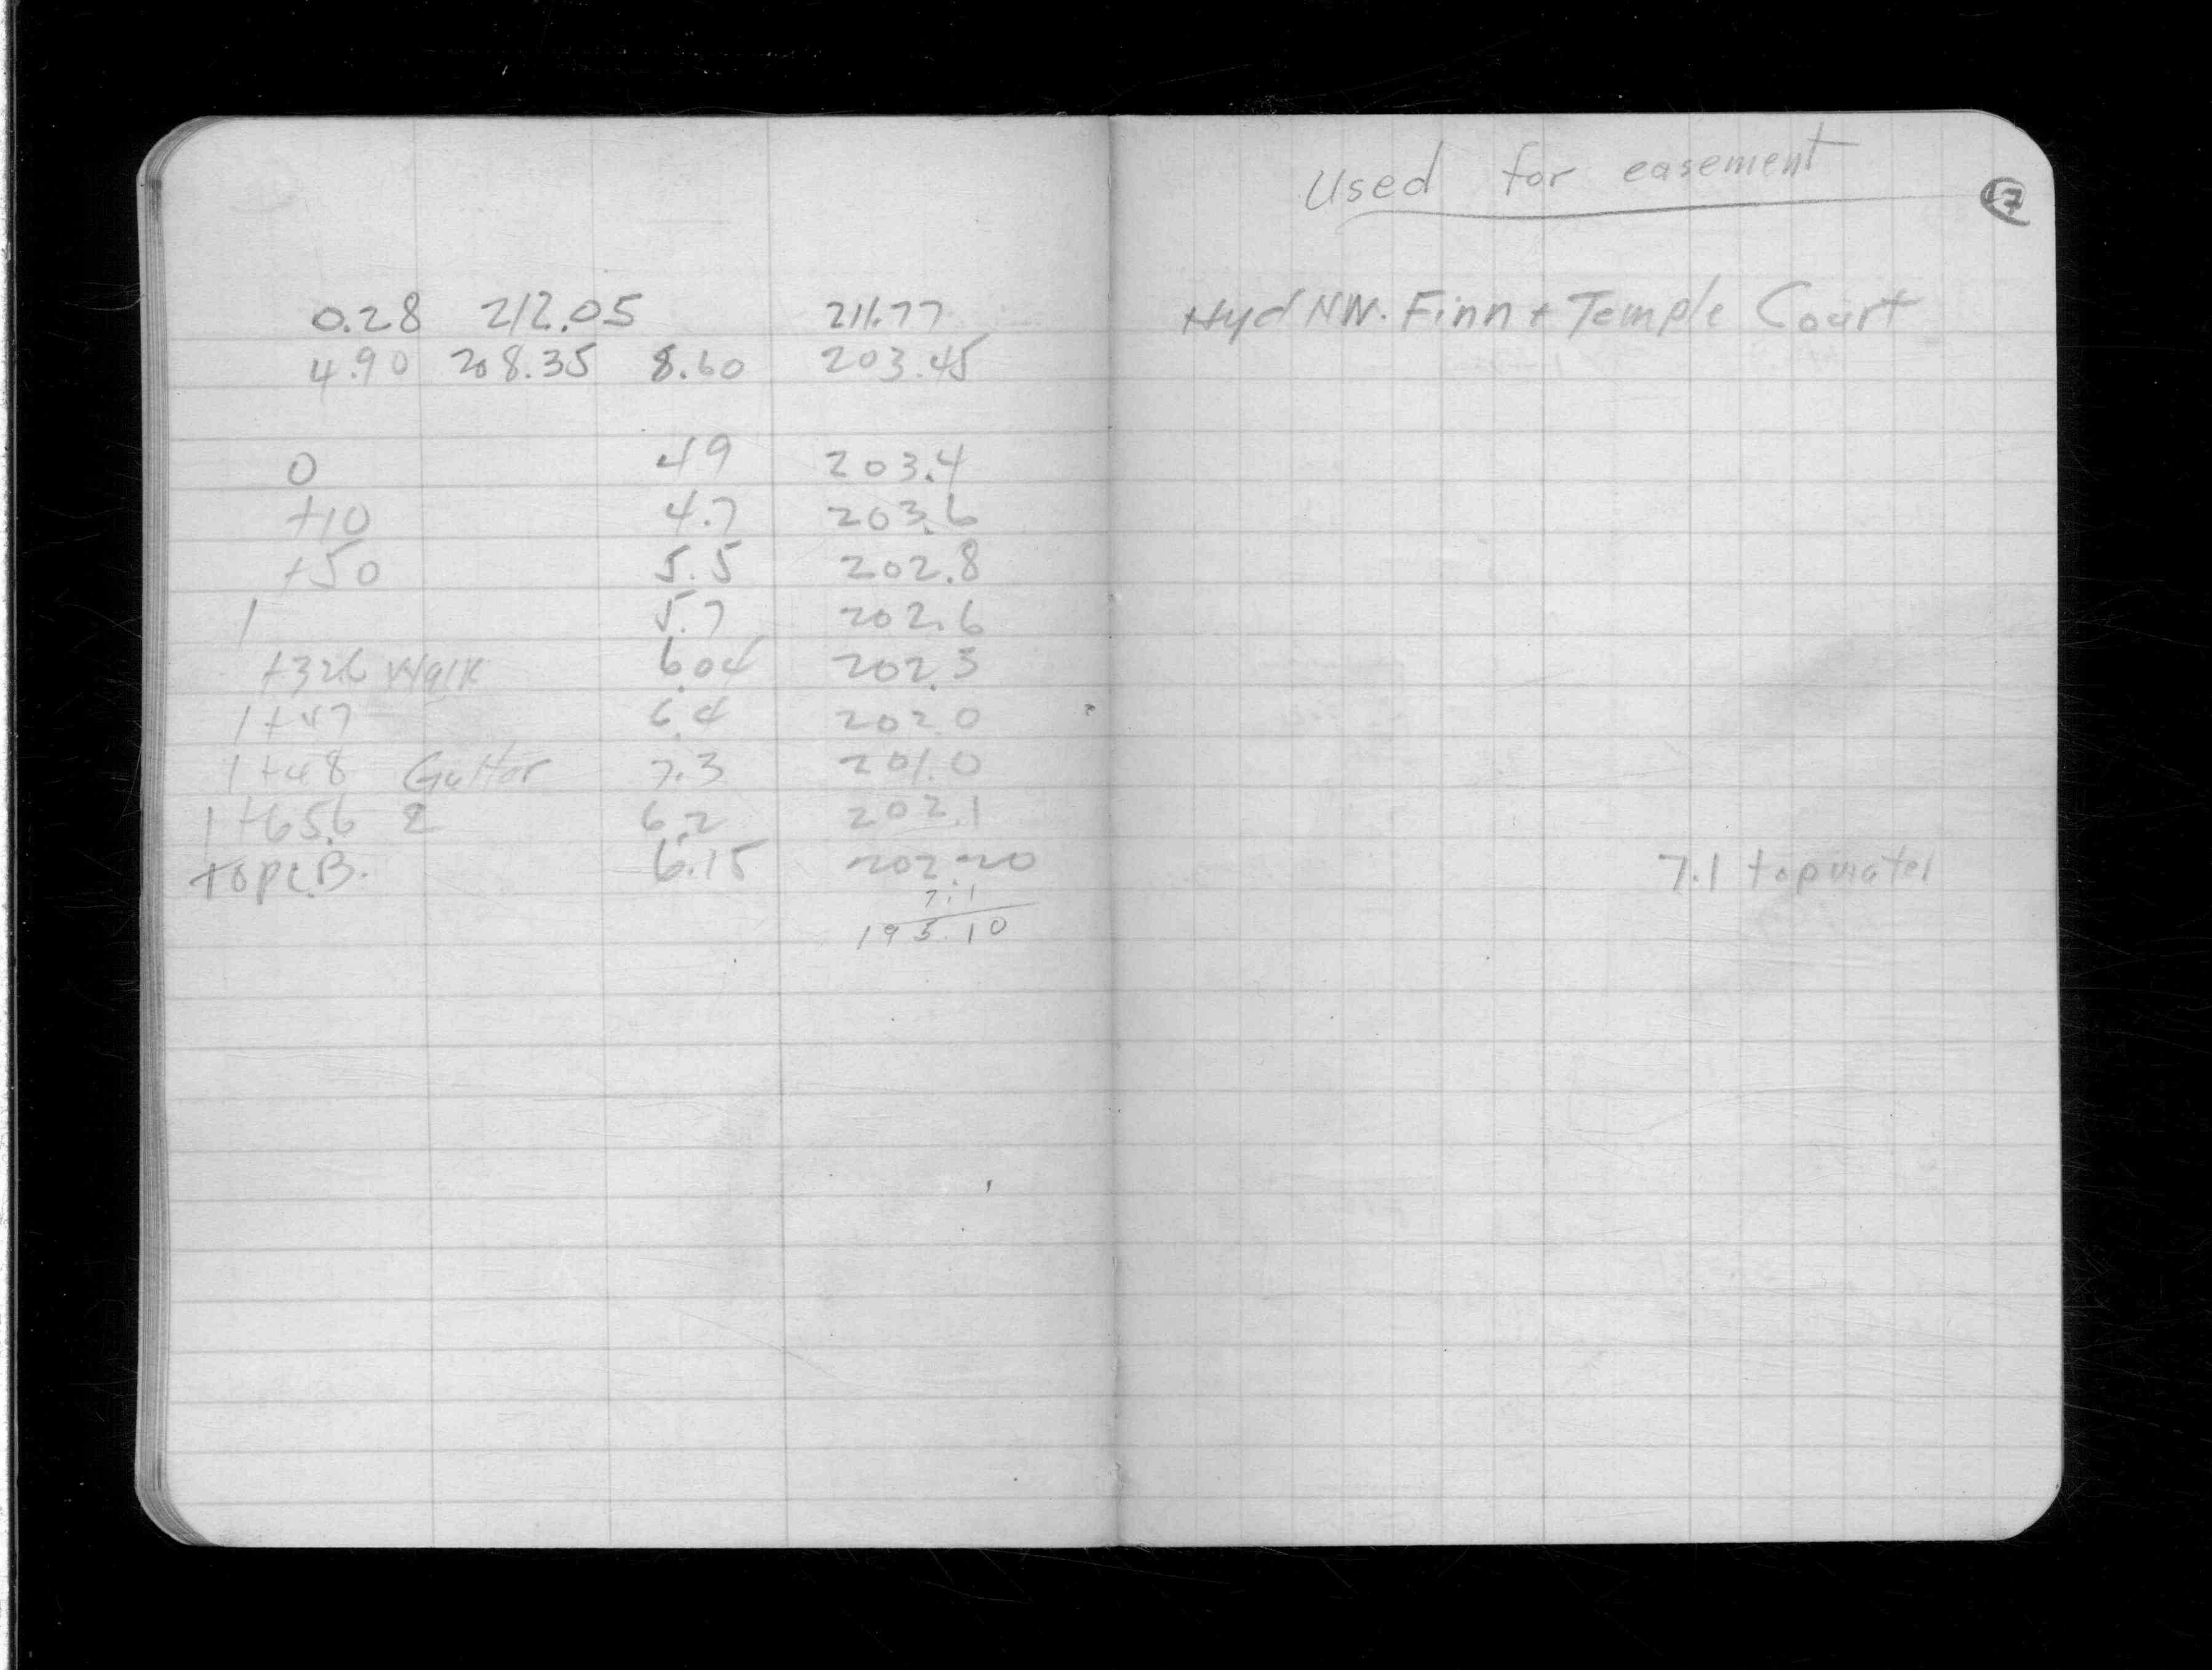 0.28 212.05 211.77
4.90 208.35 8.60 203.45
0 49 203.4
+10 4.7 203.6
+50 5.5 202.8
1 5.7 202.6
+32.6 Walk 6.04 202.3
1+47 6.4 202.0
1+48 Gutter 7.3 201.0
1+65.6 6.2 202.1
top C.B. 6.15 202.20
7.1
195.10
Used for easement
17
Hyd NW. Finn + Temple Court
7.1 top water